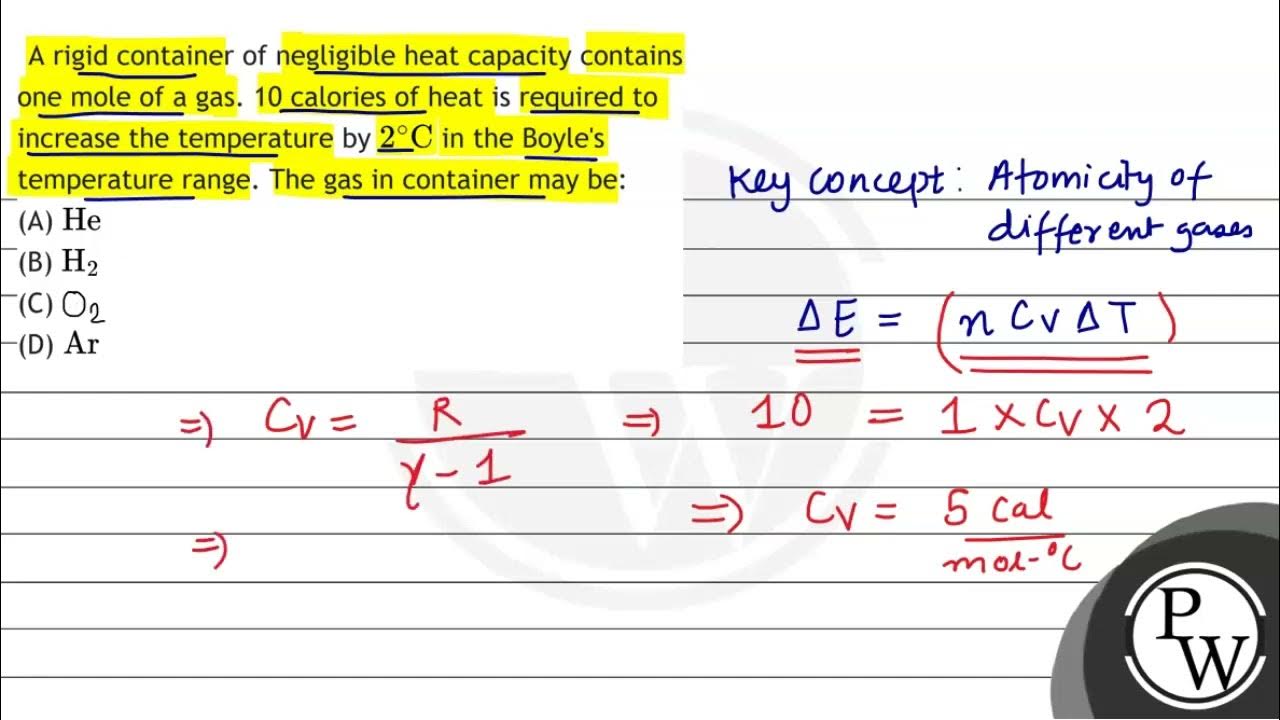 A rigid container of negligible heat capacity contains
one mole of a gas. 10 calories of heat is required to
increase the temperature by 2°C in the Boyle's
temperature range. The gas in container may be:
(A) He
(B) H₂
(C) O₂
(D) Ar
Key concept: Atomicity of
different gases
Δ E = (n Cv Δ T)
⇒ Cv = R / γ - 1 ⇒ 10 = 1 × Cv × 2
⇒ Cv = 5 cal / mol-°C
⇒
P
W